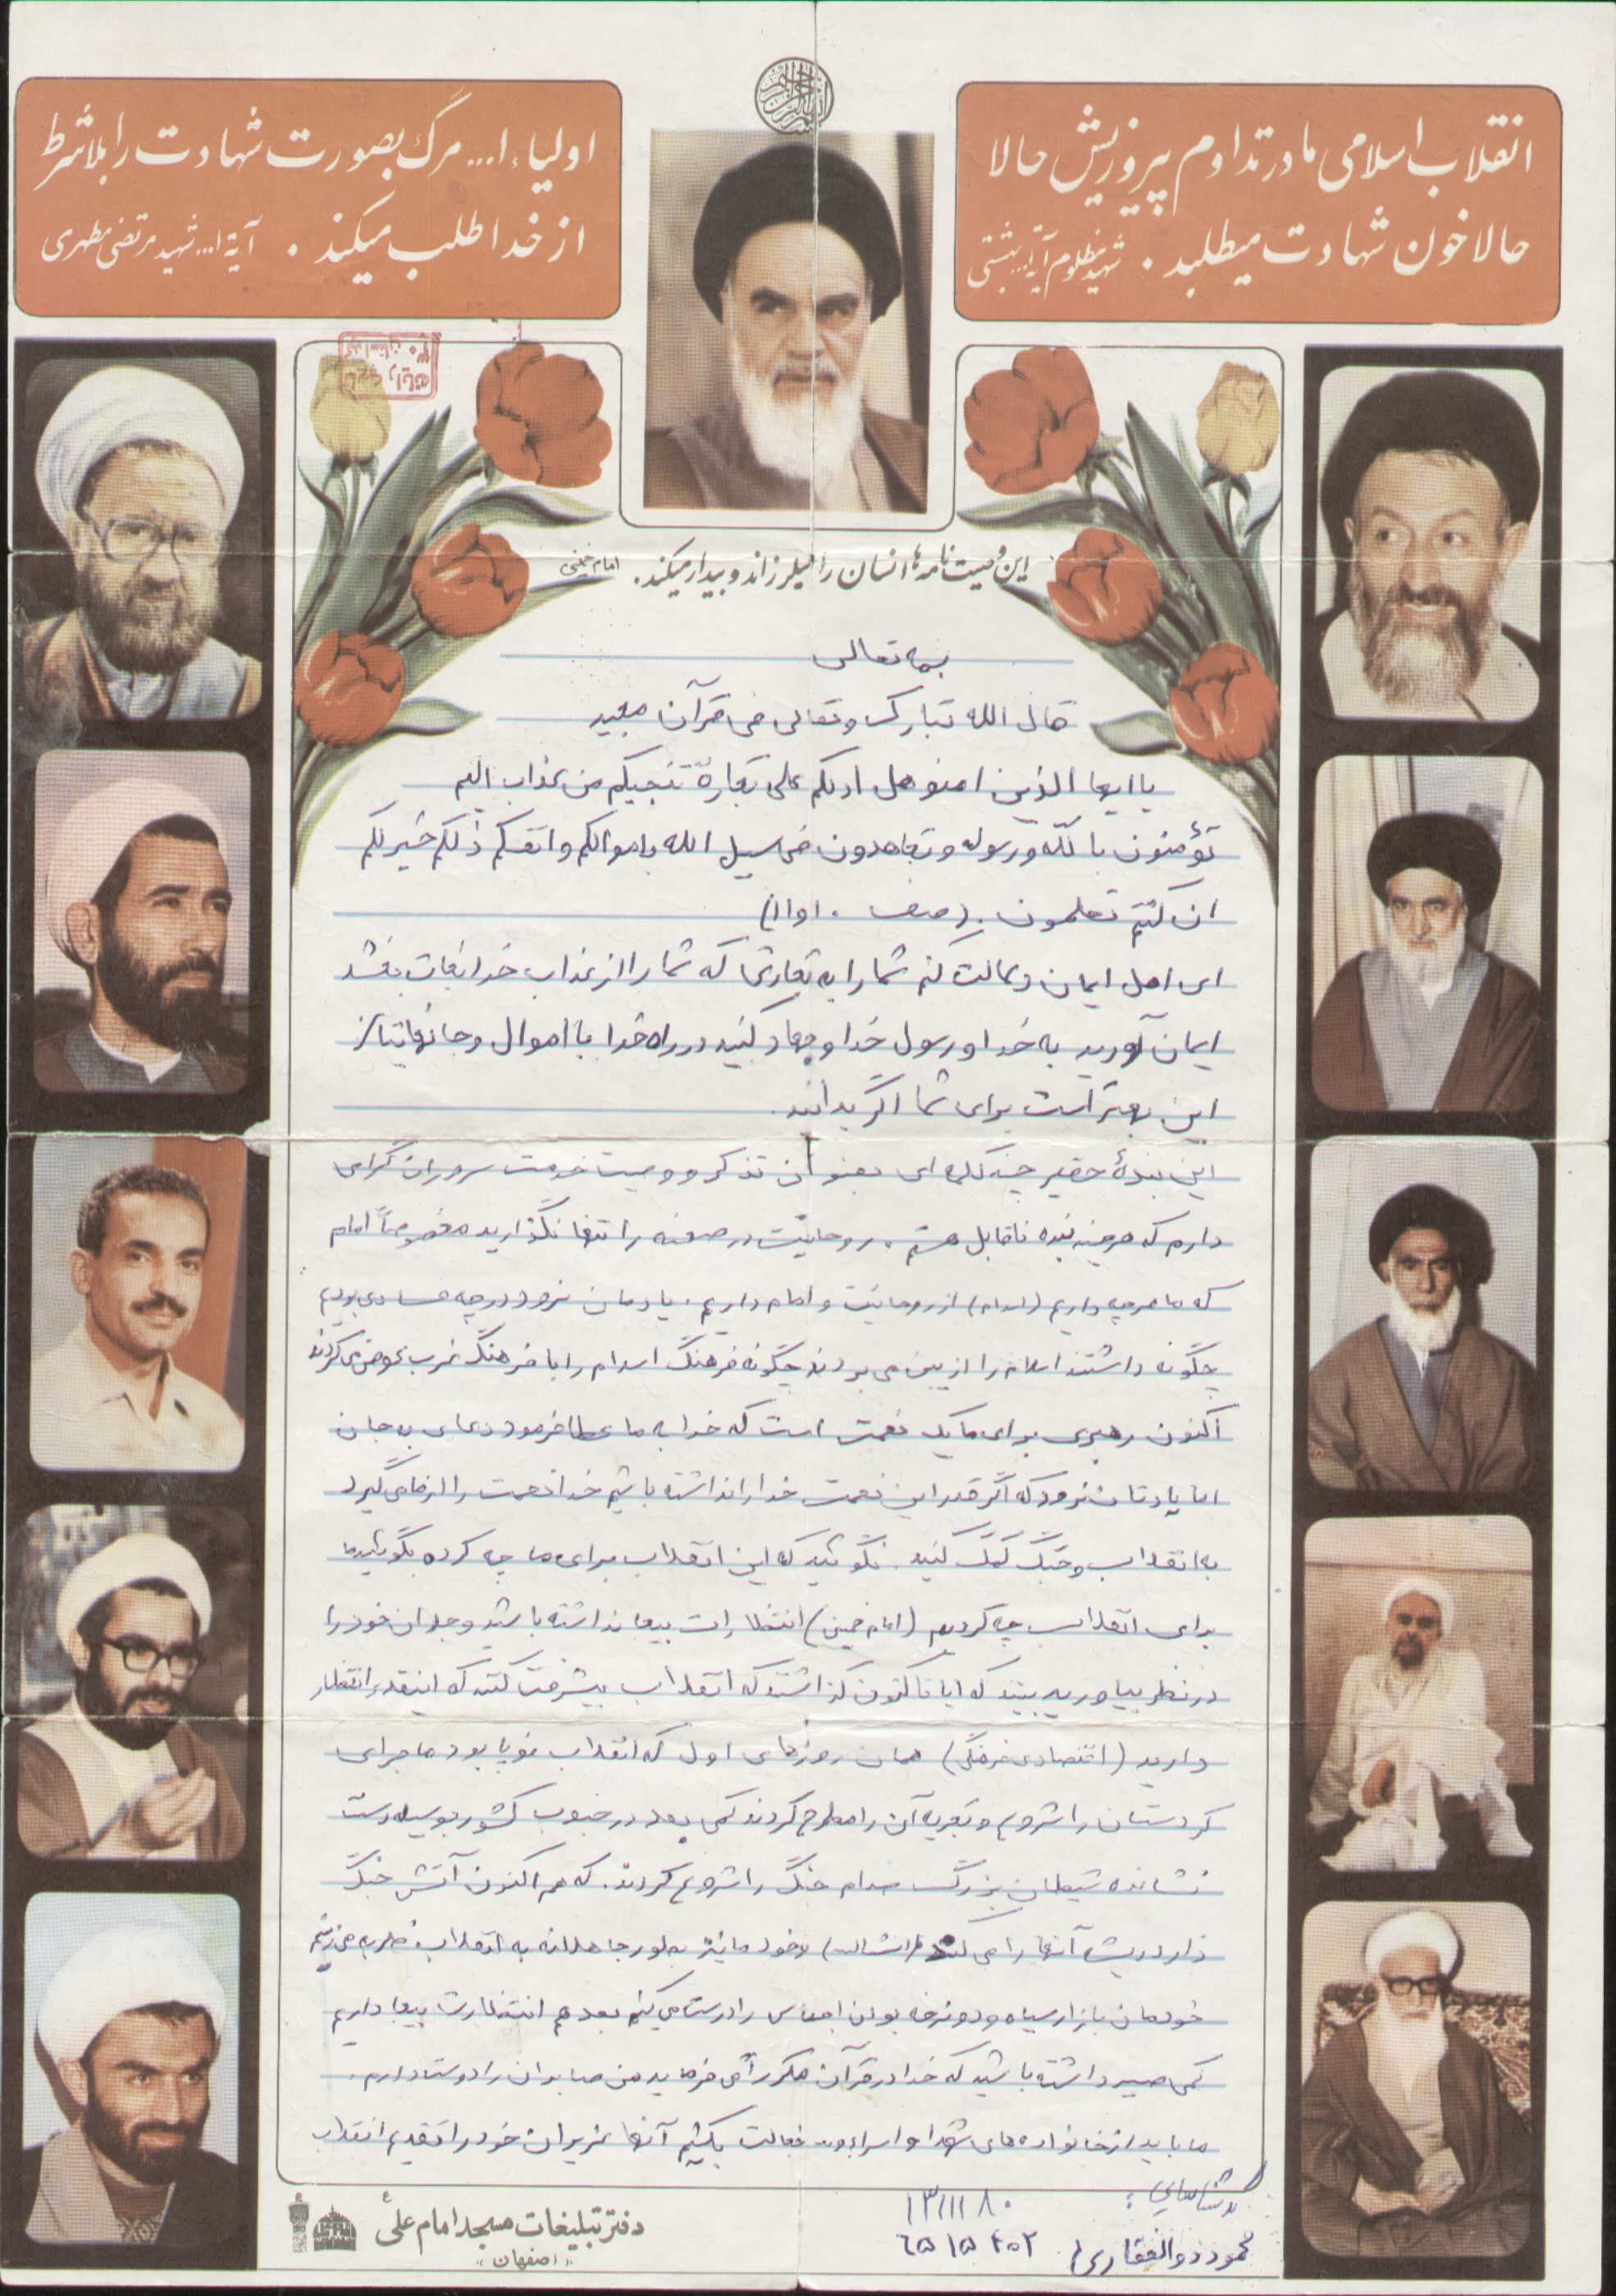 انقلاب اسلامی ما در تداوم پیروزیش حالا
حالا خون شهادت میطلبد. شهید مظلوم آیة ا... بهشتی
اولیاء ا... مرگ بصورت شهادت را بلاشرط
از خدا طلب میکند. آیة ا... شهید مرتضی مطهری
این وصیت نامه ها انسان را میلرزاند و بیدار میکند. امام خمینی
بسمه تعالی
قال الله تبارک و تعالی فی قرآن مجید
یا ایها الذین امنو هل ادلکم علی تجارة تنجیکم من عذاب الیم
تؤمنون بالله و رسوله و تجاهدون فی سبیل الله باموالکم و انفسکم ذلکم خیر لکم
ان کنتم تعلمون. (صف ۱۰ و ۱۱)
ای اهل ایمان دلالت کنم شما را به تجارتی که شما را از عذاب خدا نجات بخشد
ایمان آورید به خدا و رسول خدا و جهاد کنید در راه خدا با اموال و جانهایتان
این بهتر است برای شما اگر بدانید.
این بندۀ حقیر چند کلمه ای بعنوان تذکر و وصیت خدمت سروران گرامی
دارم که هرچند بنده ناقابل هستم. روحانیت در صحنه را تنها نگذارید مخصوصاً امام
که ما هرچه داریم (اسلام) از روحانیت و امام داریم. یادمان نرود در چه فسادی بودیم
چگونه داشتند اسلام را از بین می بردند چگونه فرهنگ اسلام را با فرهنگ غرب عوض می کردند
اکنون رهبری برای ما یک نعمت است که خدا به ما عطا فرمود دعای به جان
اما یادتان نرود که اگر قدر این نعمت خدا را نداشته باشیم خدا نعمت را از ما می گیرد
به انقلاب و جنگ کمک کنید. نگوئید که این انقلاب برای ما چه کرده بگوئید ما
برای انقلاب چه کردیم (امام خمینی) انتظارات بیجا نداشته باشید وجدان خود را
در نظر بیاورید ببینید که ایا تا کنون گذاشتند که انقلاب پیشرفت کند که اینقدر انتظار
دارید (اقتصادی فرهنگی) همان روزهای اول که انقلاب نوپا بود ماجرای
کردستان را شروع و تجزیه آن را مطرح کردند کمی بعد در جنوب کشور بوسیله دست
نشانده شیطان بزرگ صدام جنگ را شروع کردند. که هم اکنون آتش جنگ
دارد ریشه آنها را می کند (انشاالله) و خود ما نیز بطور جاهلانه به انقلاب ضربه می زنیم
خودمان بازار سیاه و دو نرخه بودن اجناس را درست می کنیم بعد هم انتظارت بیجا داریم
کمی صبر داشته باشید که خدا در قرآن مکرراً می فرماید من صابران را دوست دارم.
ما باید از خانواده های شهدا و اسراء و خجالت بکشیم آنها عزیزان خود را تقدیم انقلاب
۱۳۱۱۱۸۰
محمود ذوالفقاری
۶۵۱۵۴۰۲
دفتر تبلیغات مسجد امام علی
«اصفهان»